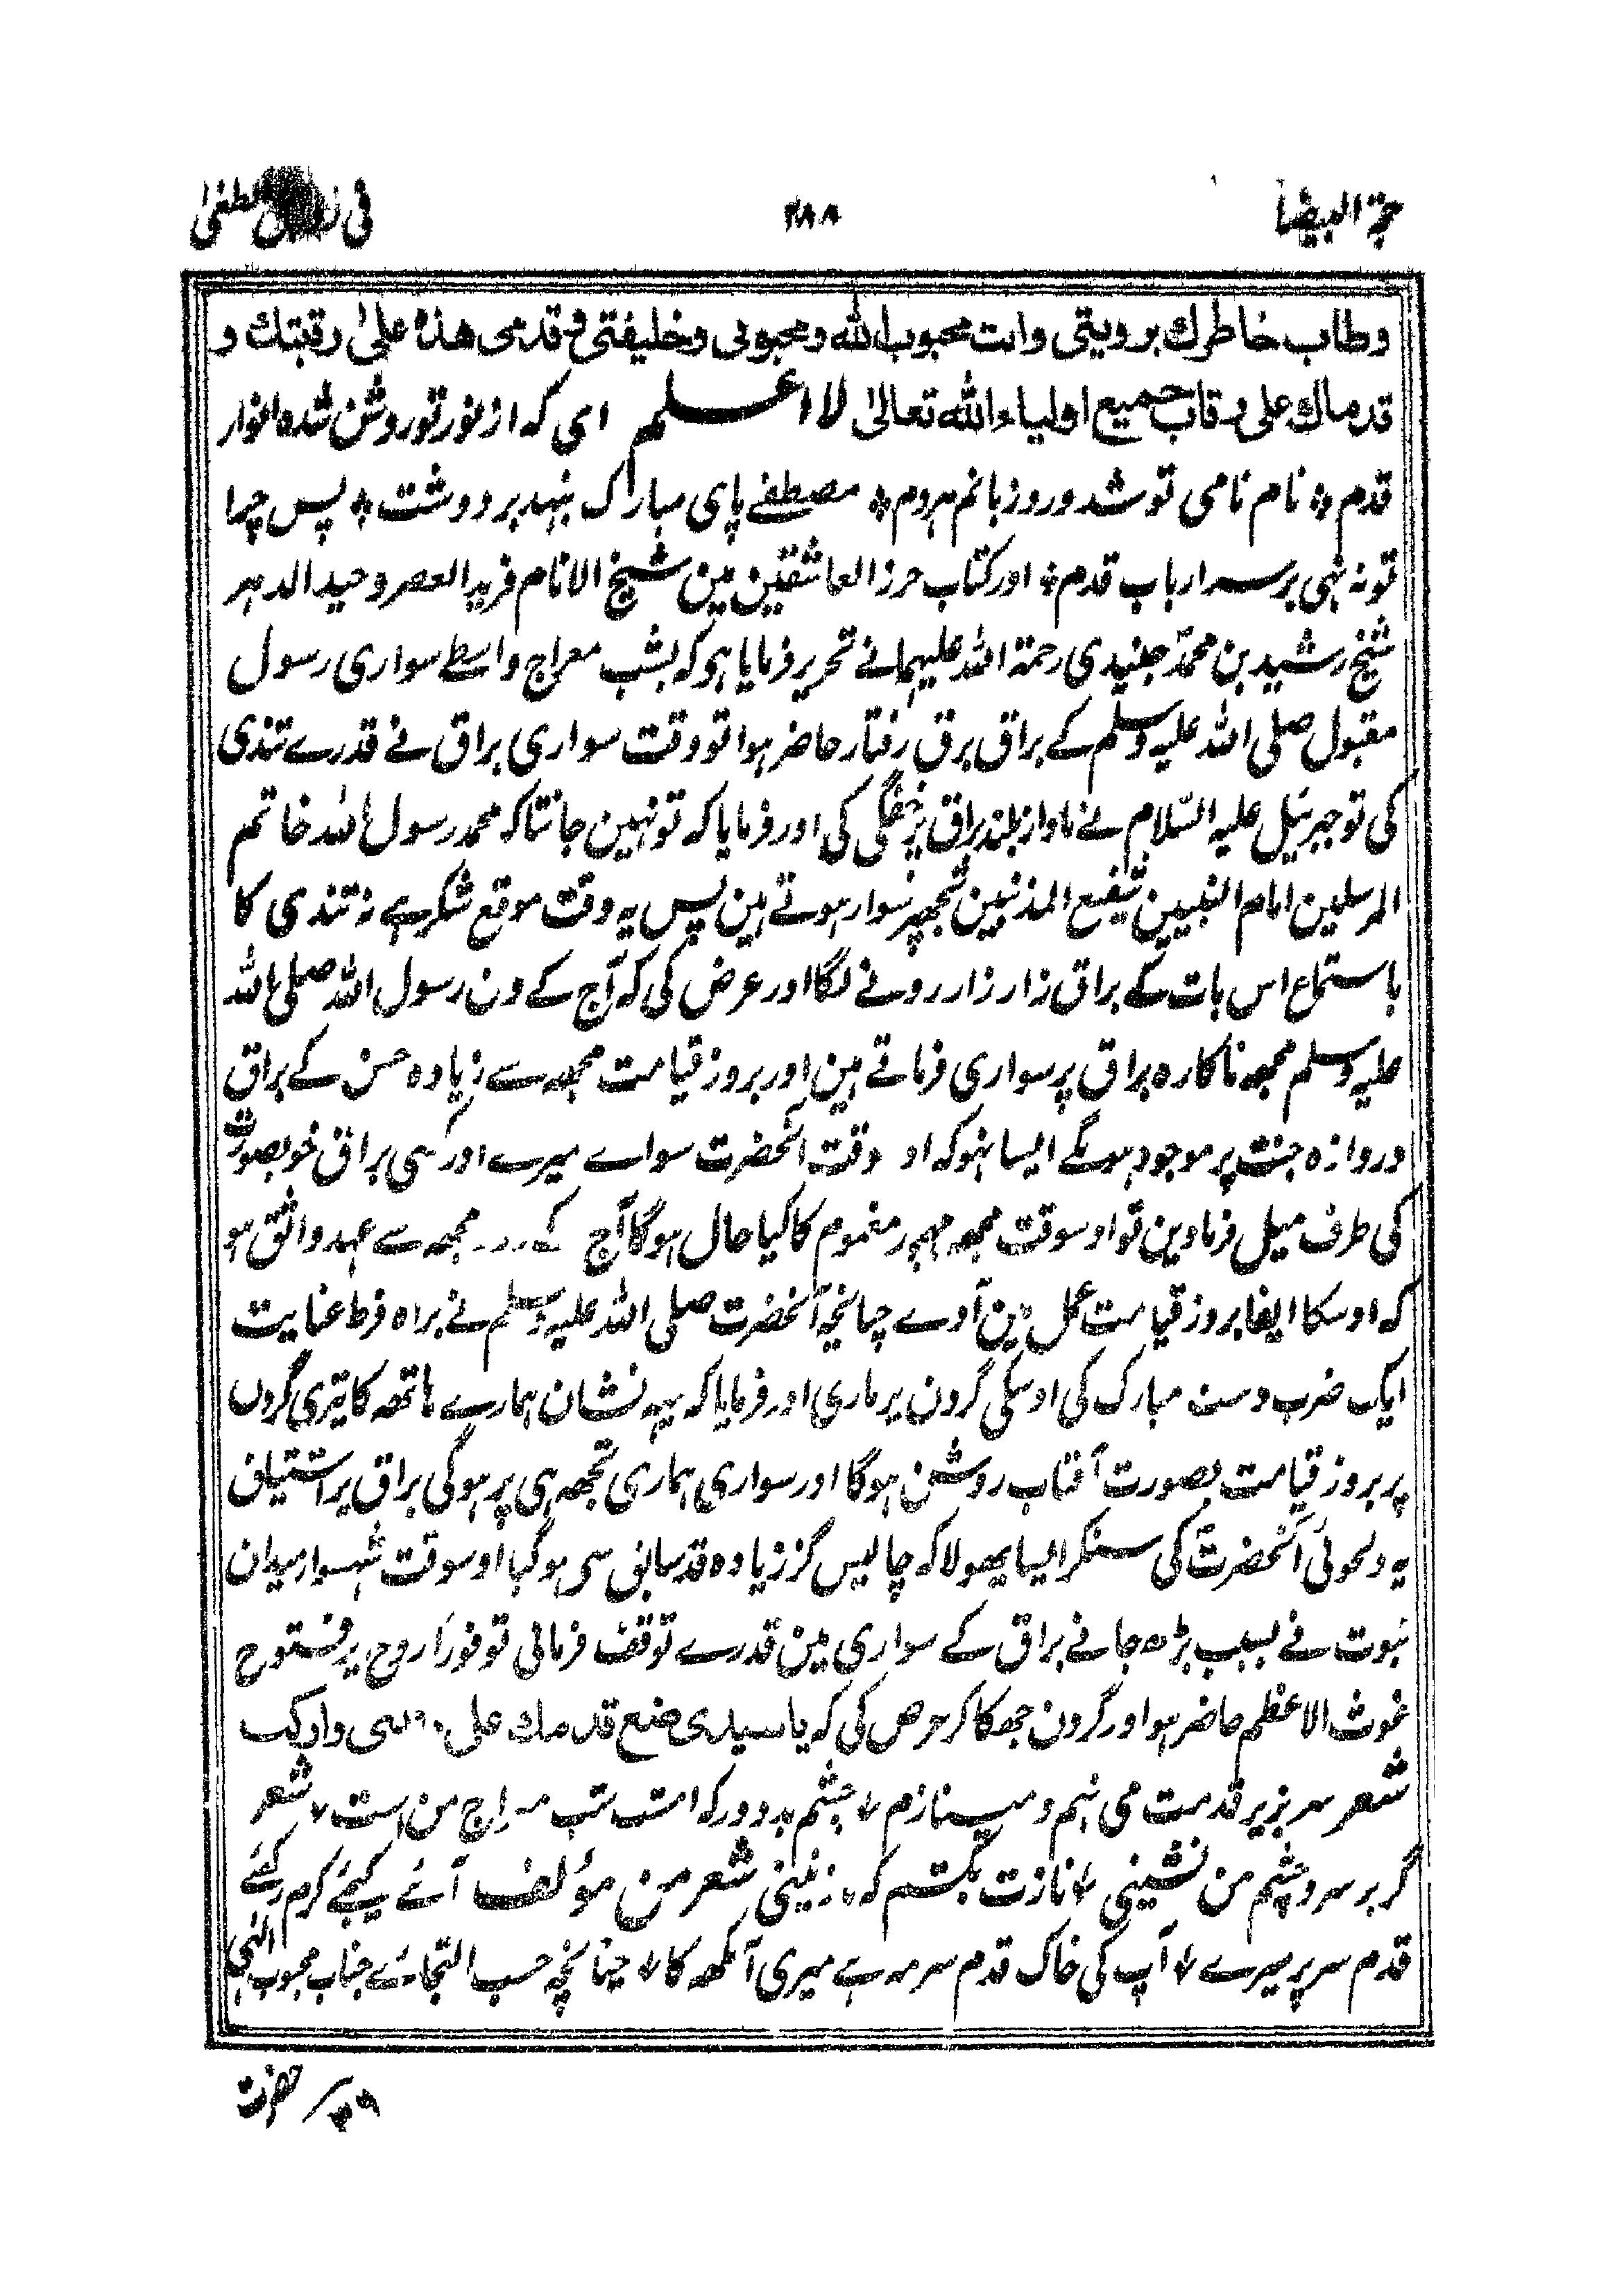 حجة البيضا ۲۸۸ في
وطاب خاطرك برويتى وانت محبوب الله ومحبوبى وخليفتى فقدمى هذه على رقبتك و
قدماك على رقاب جميع اولياء الله تعالىٰ لا اعلم ای کہ از نور تو روشن شدہ انوار
قدم ؞ نام نامی تو شد ورد زبانم ہردم ؞ مصطفے پای مبارک بنہد بر دوشت ؞ پس چرا
تو نہ نہی بر سر ارباب قدم ؞ اور کتاب حرز العاشقین مین شیخ الانام فرید العصر وحید الدہر
شیخ رشید بن محمد جنیدی رحمة اللہ علیہما نے تحریر فرمایا ہو کہ بشب معراج واسطے سواری رسول
مقبول صلی اللہ علیہ وسلم کے براق برق رفتار حاضر ہوا تو وقت سواری براق نے قدرے تندی
کی تو جبرئیل علیہ السّلام نے باواز بلند براق پر خفگی کی اور فرمایا کہ تو نہین جانتا کہ محمد رسول اللہ خاتم
المرسلین امام النبیین شفیع المذنبین تجھپر سوار ہوتے ہین پس یہ وقت موقع شکر ہے نہ تندی کا
باستماع اس بات کے براق زار زار رونے لگا اور عرض کی کہ آج کے دن رسول اللہ صلی اللہ
علیہ وسلم مجھہ ناکارہ براق پر سواری فرماتے ہین اور بروز قیامت مجھہ سے زیادہ حسن کے براق
دروازہ جنت پر موجود ہونگے ایسا نہو کہ او وقت آنحضرت سواے میرے اور کسی براق خوبصورت
کی طرف میل فرماوین تو اوسوقت مجھہ مہجور مغموم کا کیا حال ہوگا آج کے مجھہ سے عہد واثق ہو
کہ اوسکا ایفا بروز قیامت عمل مین آوے چنانچہ آنحضرت صلی اللہ علیہ وسلم نے براہ فرط عنایت
ایک ضرب دست مبارک کی اوسکی گردن پر ماری اور فرمایا کہ یہہ نشان ہمارے ہاتھہ کا تیری گردن
پر بروز قیامت بصورت آفتاب روشن ہوگا اور سواری ہماری تجھہ ہی پر ہوگی براق پر اشتیاق
یہ دلجوئی آنحضرت کی سنکر ایسا پھولا کہ چالیس گز زیادہ قد سابق سی ہوگیا اوسوقت شہسوار میدان
نبوت نے بسبب بڑہ جانے براق کے سواری مین قدرے توقف فرمائی تو فوراً روح پر فتوح
غوث الاعظم حاضر ہوا اور گردن جھکا کر عرض کی کہ یا سیدی ضع قدمك على وارکب
شعر سر بزیر قدمت می نہم و مینازم ؍ چشم بد دور کہ امشب شب معراج من است ؍ شعر
گر بر سر و چشم من نشینی ؍ نازت بکشم کہ نازنینی شعر من مؤلف آئے کیجئے کرم رکھئے
قدم سر پر میرے ؍ آپ کی خاک قدم سرمہ ہے میری آنکھہ کا ؍ چنانچہ حسب التجائے جناب محبوب الٰہی
حضرت